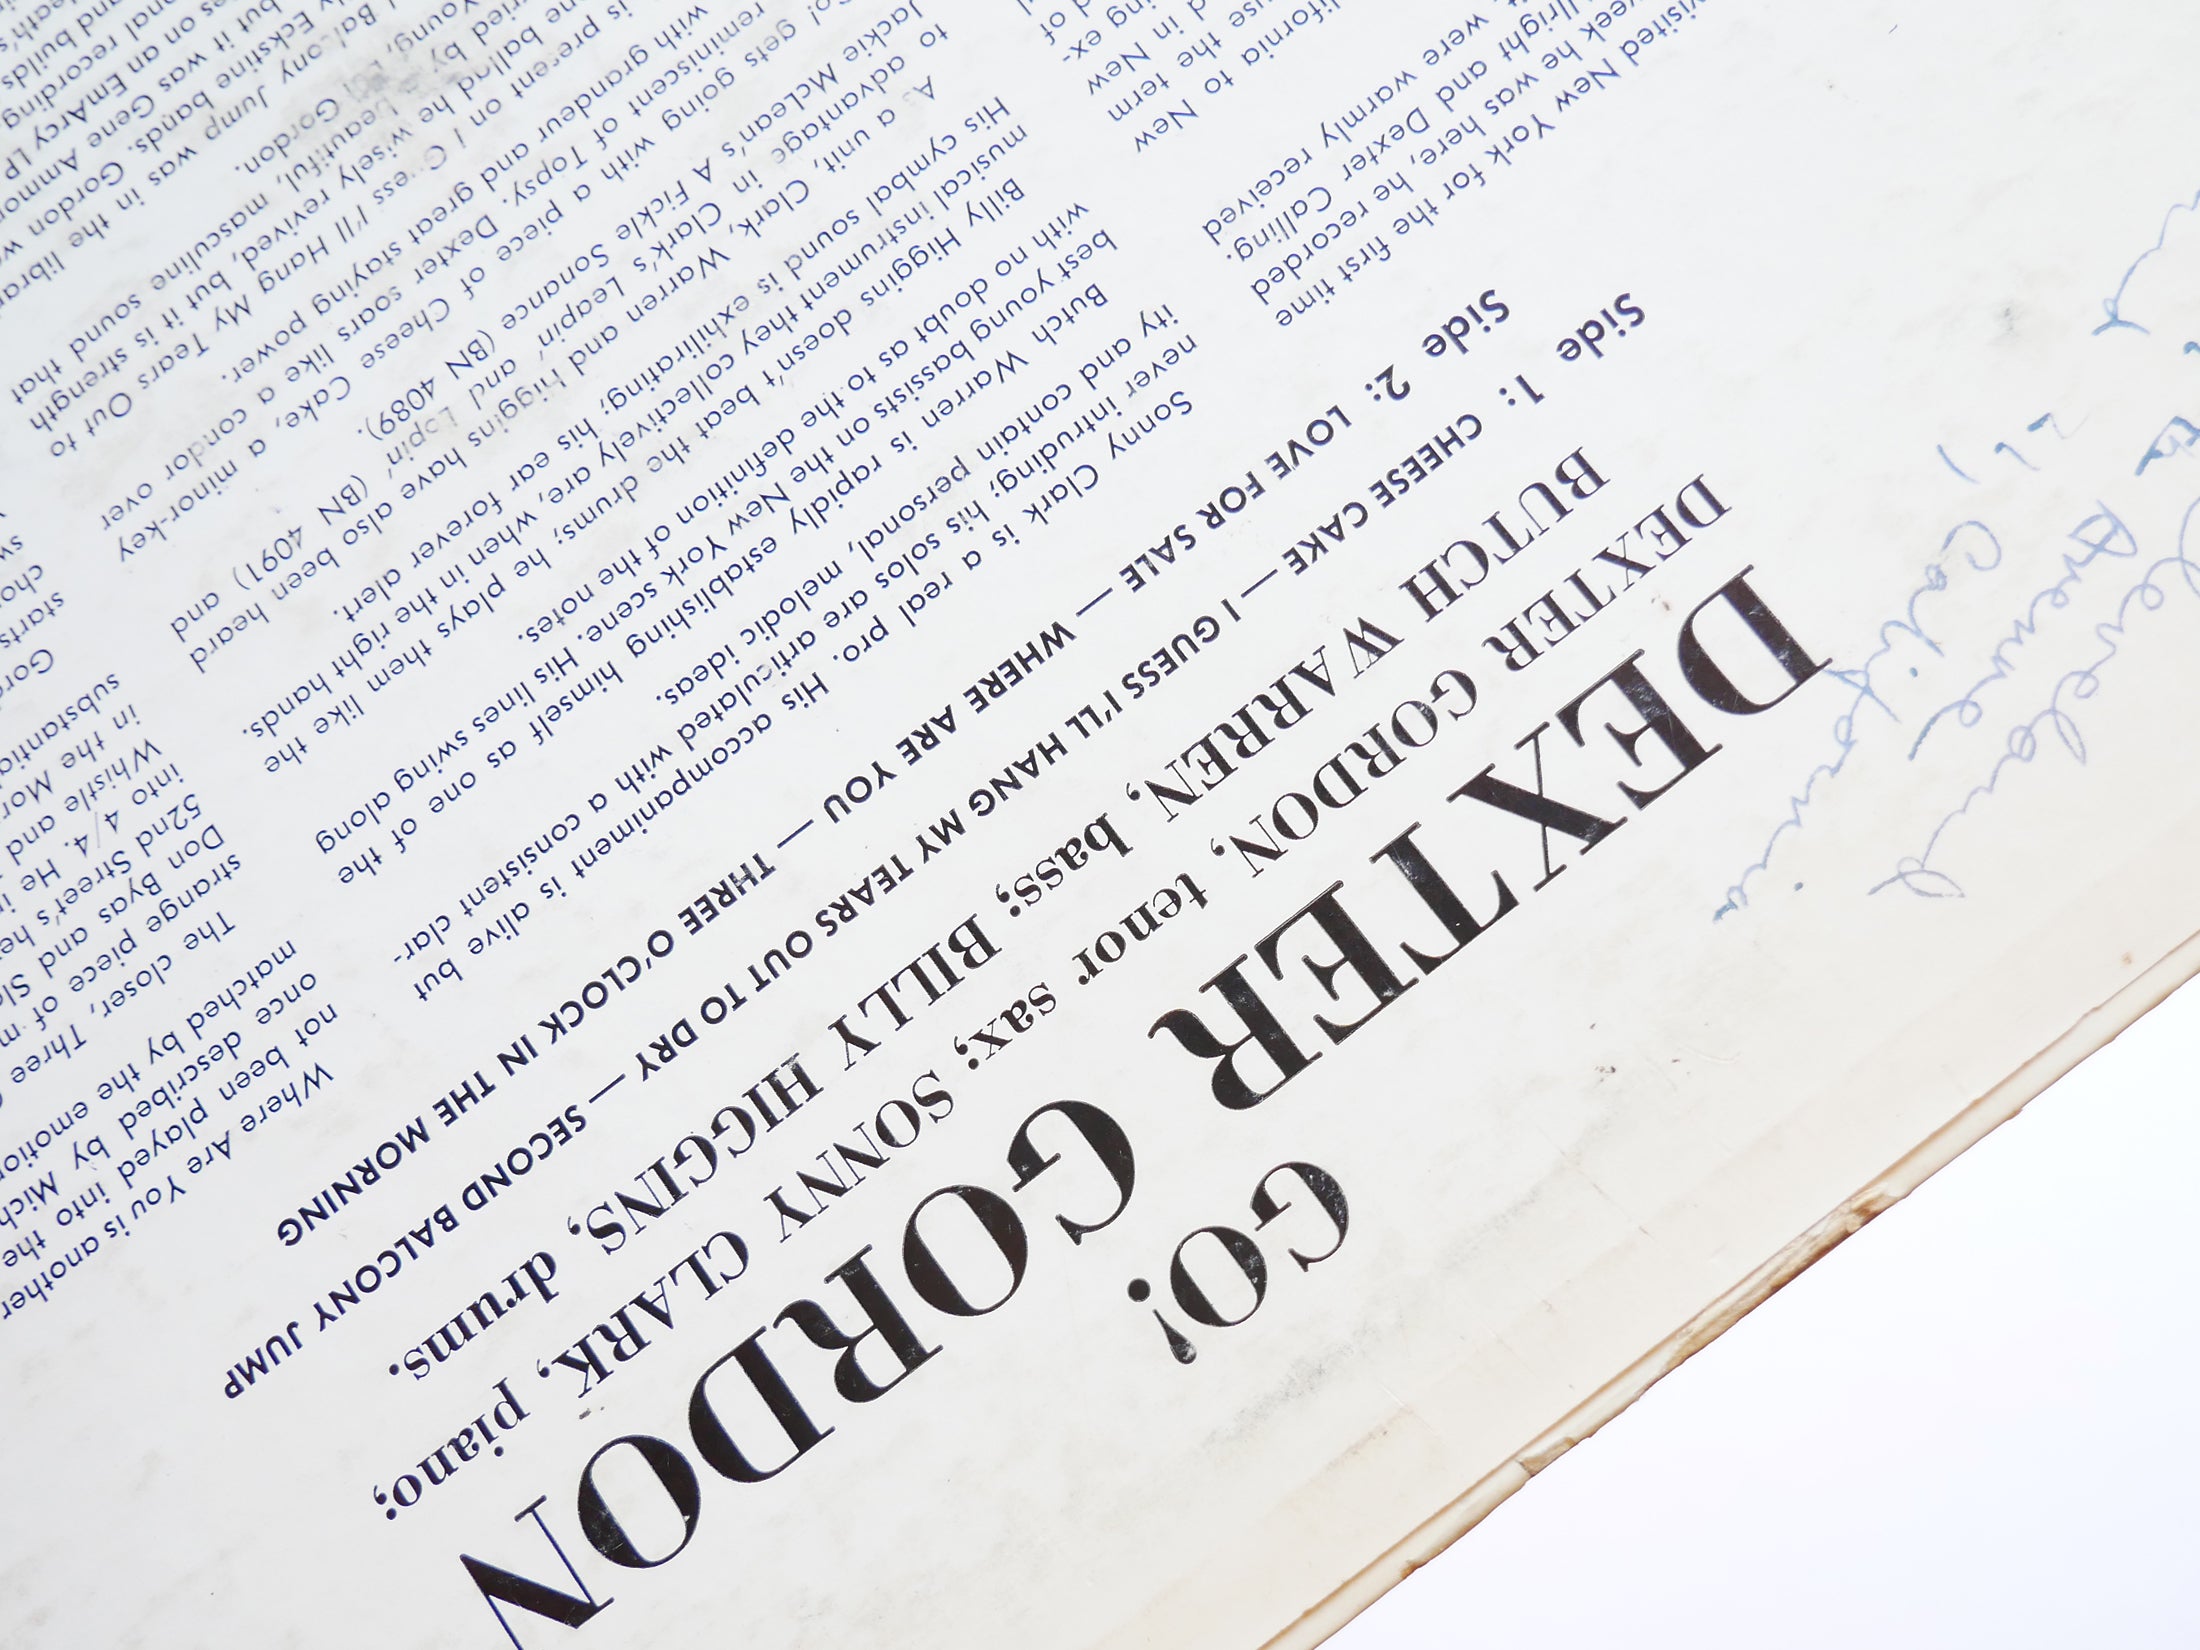 GO!
DEXTER GORDON
DEXTER GORDON, tenor sax; SONNY CLARK, piano;
BUTCH WARREN, bass; BILLY HIGGINS, drums.
Side 1: CHEESE CAKE — I GUESS I'LL HANG MY TEARS OUT TO DRY — SECOND BALCONY JUMP
Side 2: LOVE FOR SALE — WHERE ARE YOU — THREE O'CLOCK IN THE MORNING
Avenue
California
visited New York for the first time
week he was here, he recorded
and Dexter Calling.
were warmly received
to New
the term
in New
of
Sonny Clark is a real pro. His accompaniment is alive but
never intruding; his solos are articulated with a consistent clar-
ity and contain personal, melodic ideas.
Butch Warren is rapidly establishing himself as one of the
best young bassists on the New York scene. His lines swing along
with no doubt as to the definition of the notes.
Billy Higgins doesn't beat the drums; he plays them like the
musical instrument they collectively are, when in the right hands.
His cymbal sound is exhilirating; his ear forever alert.
As a unit, Clark, Warren and Higgins have also been heard
to advantage in Clark's Leapin' and Lopin' (BN 4091) and
Jackie McLean's A Fickle Sonance (BN 4089).
Go! gets going with a piece of Cheese Cake, a minor-key
reminiscent of Topsy. Dexter soars like a condor over
with grandeur and great staying power.
is present on I Guess I'll Hang My Tears Out to
one ballad he wisely revived, but it is strength
by beautiful, masculine sound that
Young, Gordon.
Balcony Jump was in the
Eckstine bands. Gordon
but it was Gene
on an EmArcy LP
recording
and builds
Where Are You is another
not been played into the
once described by
matched by the
The closer, Three
strange piece of
Don Byas and
52nd Street's
into 4/4. He
Whistle and
in the
starts